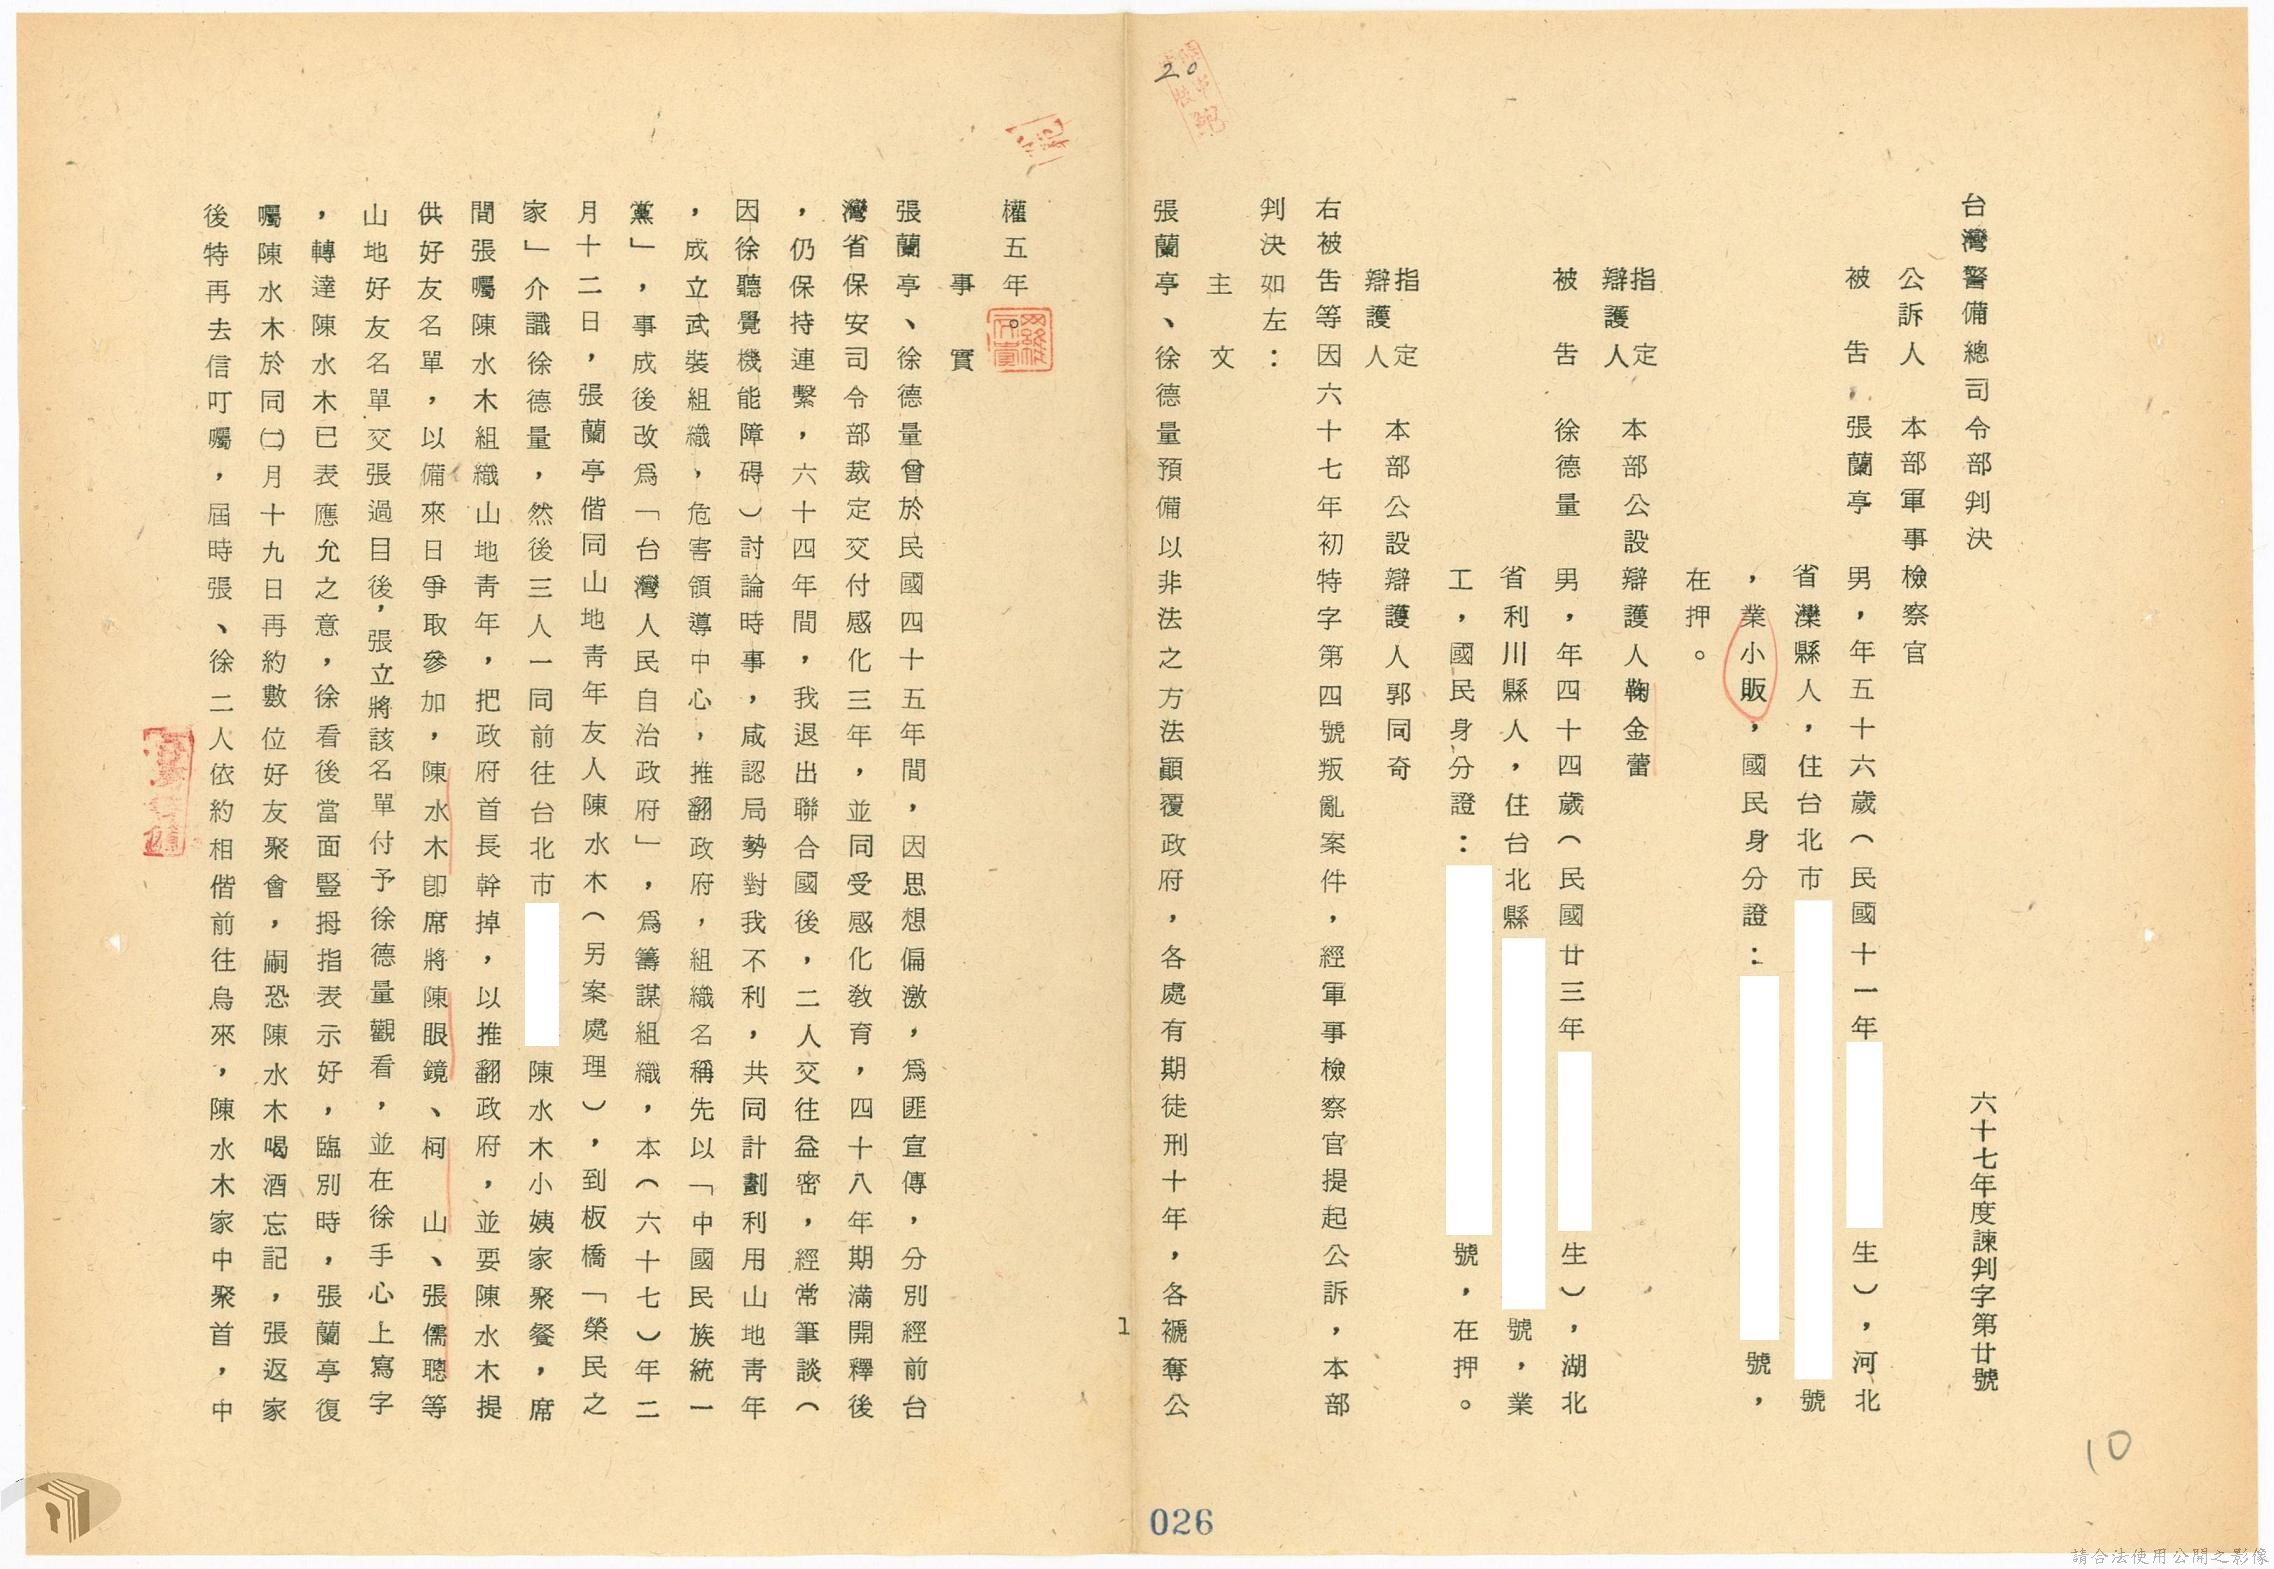 台灣警備總司令部判決
六十七年度諫判字第廿號
公訴人　本部軍事檢察官
被　告　張蘭亭　男，年五十六歲（民國十一年　生），河北
省灤縣人，住台北市　號
，業小販，國民身分證：　號，
在押。
指定辯護人　本部公設辯護人鞠金蕾
被　告　徐德量　男，年四十四歲（民國廿三年　生），湖北
省利川縣人，住台北縣　號，業
工，國民身分證：　號，在押。
指定辯護人　本部公設辯護人郭同奇
右被告等因六十七年初特字第四號叛亂案件，經軍事檢察官提起公訴，本部
判決如左：
主　文
張蘭亭、徐德量預備以非法之方法顚覆政府，各處有期徒刑十年，各褫奪公
權五年。
事　實
張蘭亭、徐德量曾於民國四十五年間，因思想偏激，爲匪宣傳，分別經前台
灣省保安司令部裁定交付感化三年，並同受感化敎育，四十八年期滿開釋後
，仍保持連繫，六十四年間，我退出聯合國後，二人交往益密，經常筆談（
因徐聽覺機能障碍）討論時事，咸認局勢對我不利，共同計劃利用山地靑年
，成立武裝組織，危害領導中心，推翻政府，組織名稱先以「中國民族統一
黨」，事成後改爲「台灣人民自治政府」，爲籌謀組織，本（六十七）年二
月十二日，張蘭亭偕同山地靑年友人陳水木（另案處理），到板橋「榮民之
家」介識徐德量，然後三人一同前往台北市　陳水木小姨家聚餐，席
間張囑陳水木組織山地靑年，把政府首長幹掉，以推翻政府，並要陳水木提
供好友名單，以備來日爭取參加，陳水木卽席將陳眼鏡、柯　山、張儒聰等
山地好友名單交張過目後，張立將該名單付予徐德量觀看，並在徐手心上寫字
，轉達陳水木已表應允之意，徐看後當面豎拇指表示好，臨別時，張蘭亭復
囑陳水木於同㈡月十九日再約數位好友聚會，嗣恐陳水木喝酒忘記，張返家
後特再去信叮囑，屆時張、徐二人依約相偕前往烏來，陳水木家中聚首，中
1
20
10
026
請合法使用公開之影像